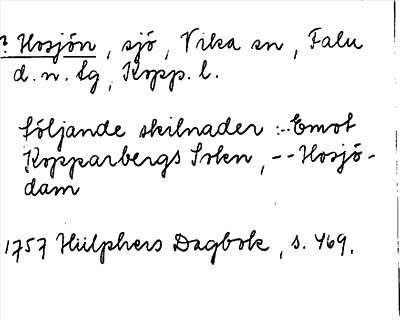 ? Hosjön, sjö, Vika sn, Falu
d.n. tg, Kopp. l.
följande skilnader :--Emot
Kopparbergs Sokn, -- Hosjö-
dam
1757 Hülphers Dagbok, s. 469.